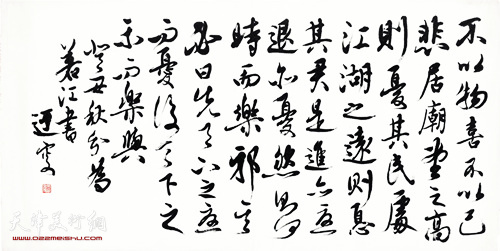 不以物喜不以己
悲居廟堂之高
則憂其民處
江湖之遠則憂
其君是進亦憂
退亦憂然則何
時而樂邪其
必曰先天下之憂
而憂後天下之
樂而樂與
秋分為
若江書
天津美术网
www.022meishu.com